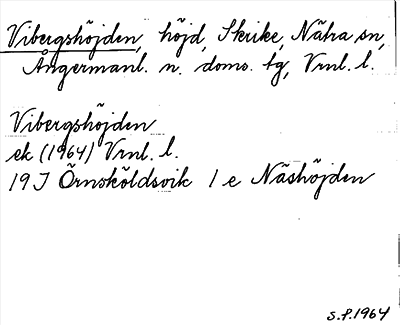 Vibergshöjden, höjd, Skrike, Nätra sn,
Ångermanl. n. doms. tg, Vrnl. l.
Vibergshöjden
ek (1964) Vrnl. l.
19 J Örnsköldsvik 1 e Näshöjden
S.P. 1964